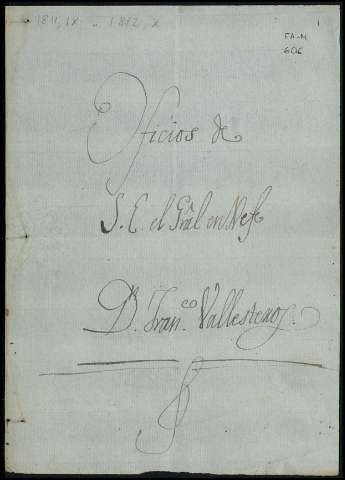 1811, IX - 1812, X
1
FA-M
606
Oficios de
S. E. el Gral en Xefe
D. Fran.co Vallesteros.